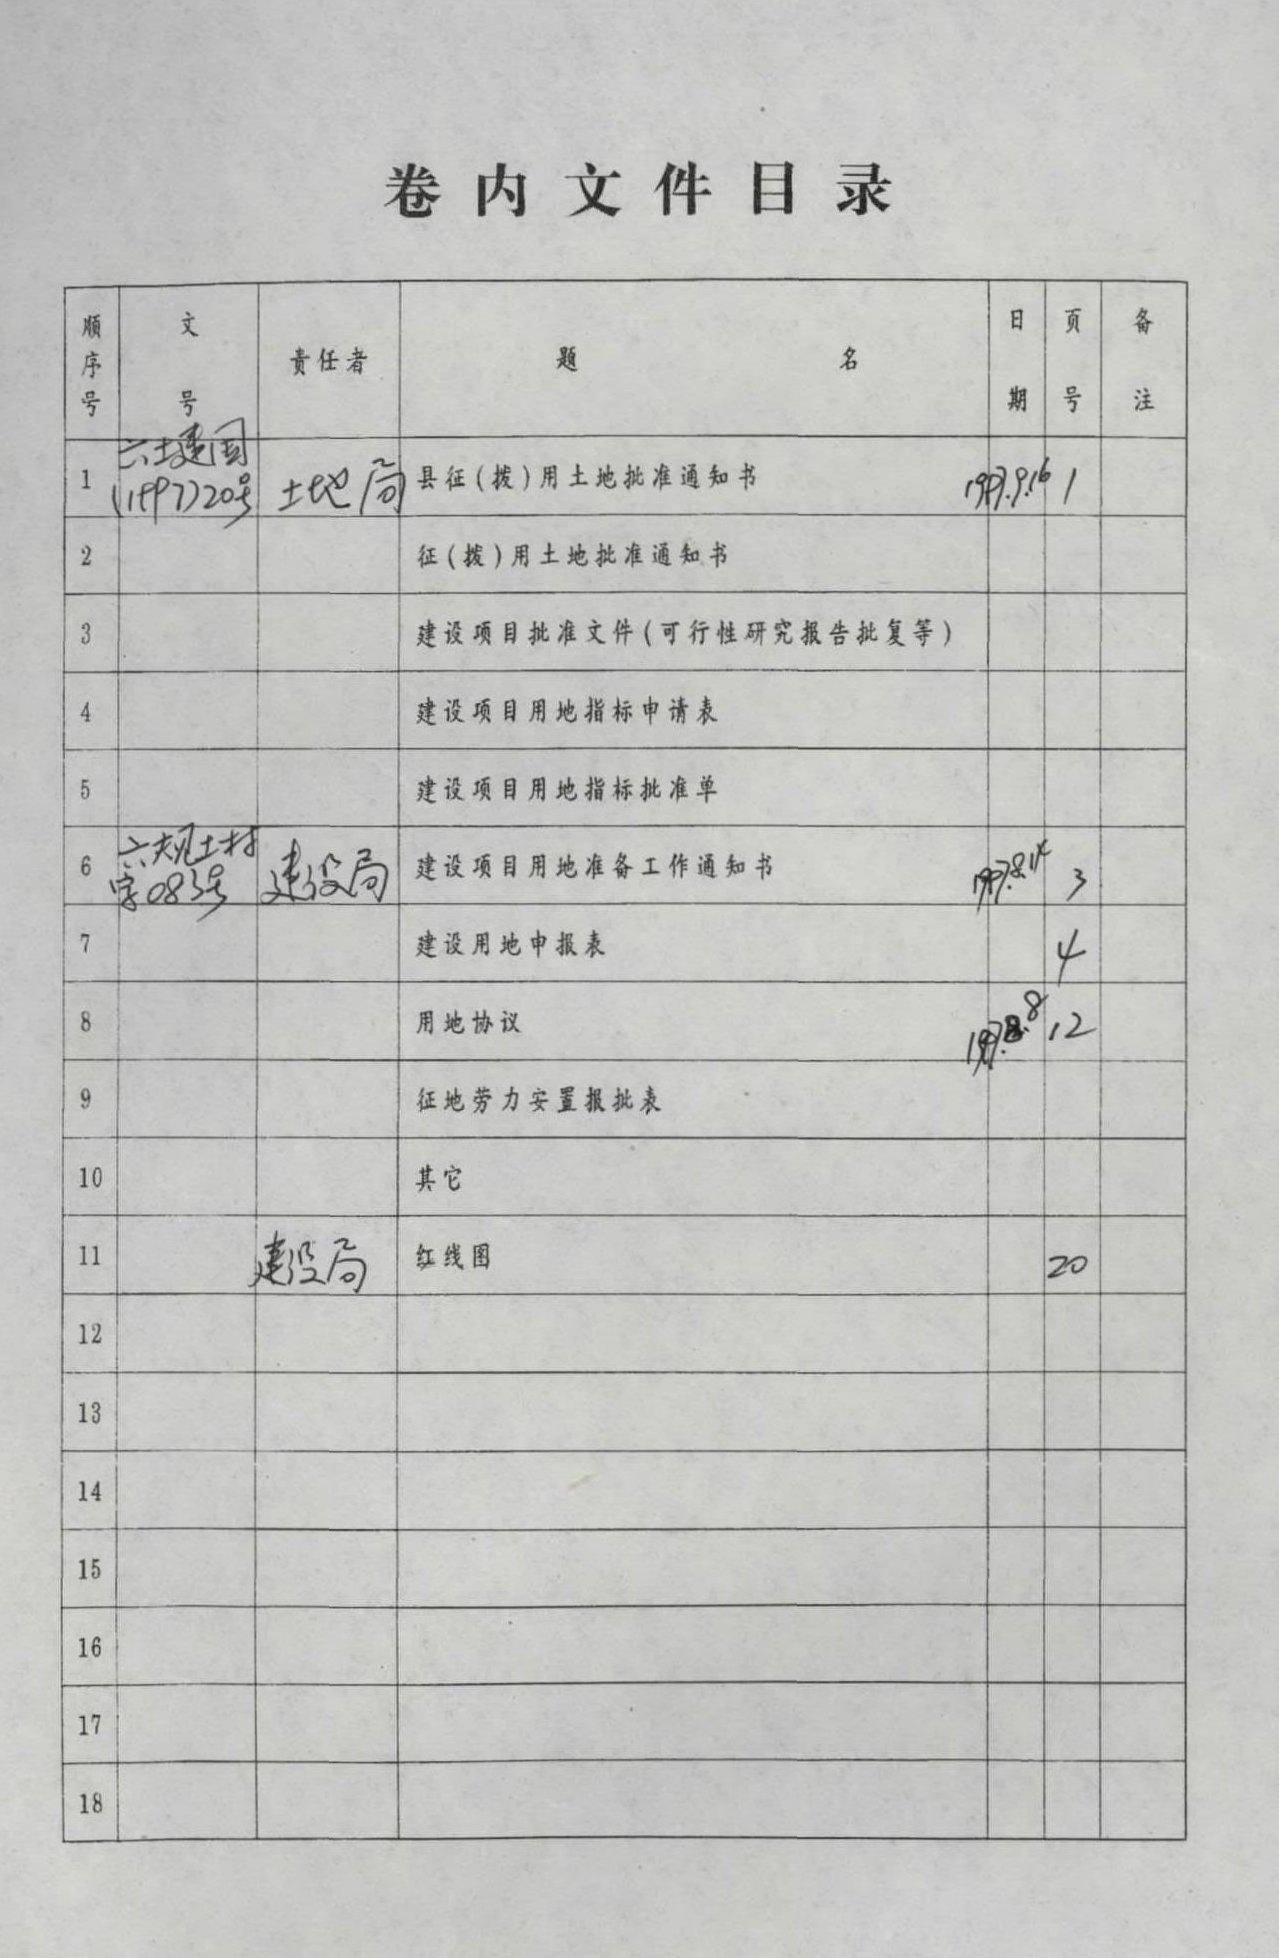 卷内文件目录
顺序号 文号 责任者 题名 日期 页号 备注
1 六土建国(1997)20号 土地局 县征(拨)用土地批准通知书 1997.9.16 1
2 征(拨)用土地批准通知书
3 建设项目批准文件(可行性研究报告批复等)
4 建设项目用地指标申请表
5 建设项目用地指标批准单
6 六规土村字083号 建设局 建设项目用地准备工作通知书 1997.8.14 3
7 建设用地申报表 4
8 用地协议 1997.8.8 12
9 征地劳力安置报批表
10 其它
11 建设局 红线图 20
12
13
14
15
16
17
18